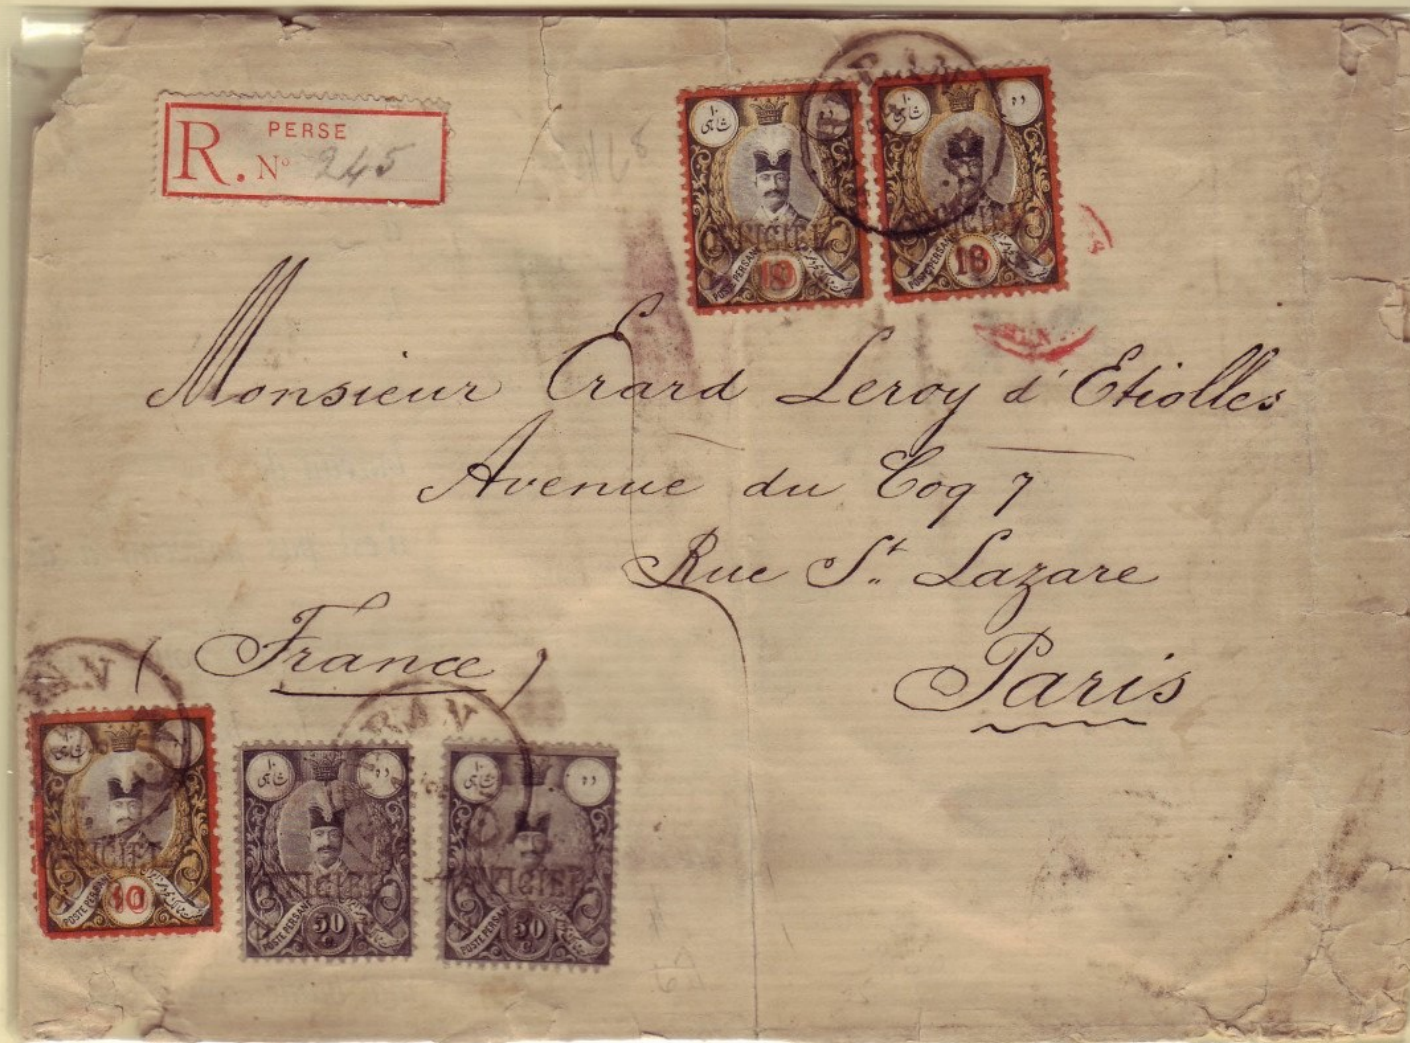 PERSE
R. No 245
۱۰ شاهی
POSTE PERSANE
18
۱۰ شاهی ده
OFFICIEL
POSTE PERSANE
18
Monsieur Erard Leroy d'Etiolles
Avenue du Coq 7
Rue St. Lazare
(France)
Paris
۱۰ شاهی
OFFICIEL
POSTE PERSANE
10
۱۰ شاهی ده
OFFICIEL
POSTE PERSANE
50 c
۱۰ شاهی ده
OFFICIEL
POSTE PERSANE
50 c